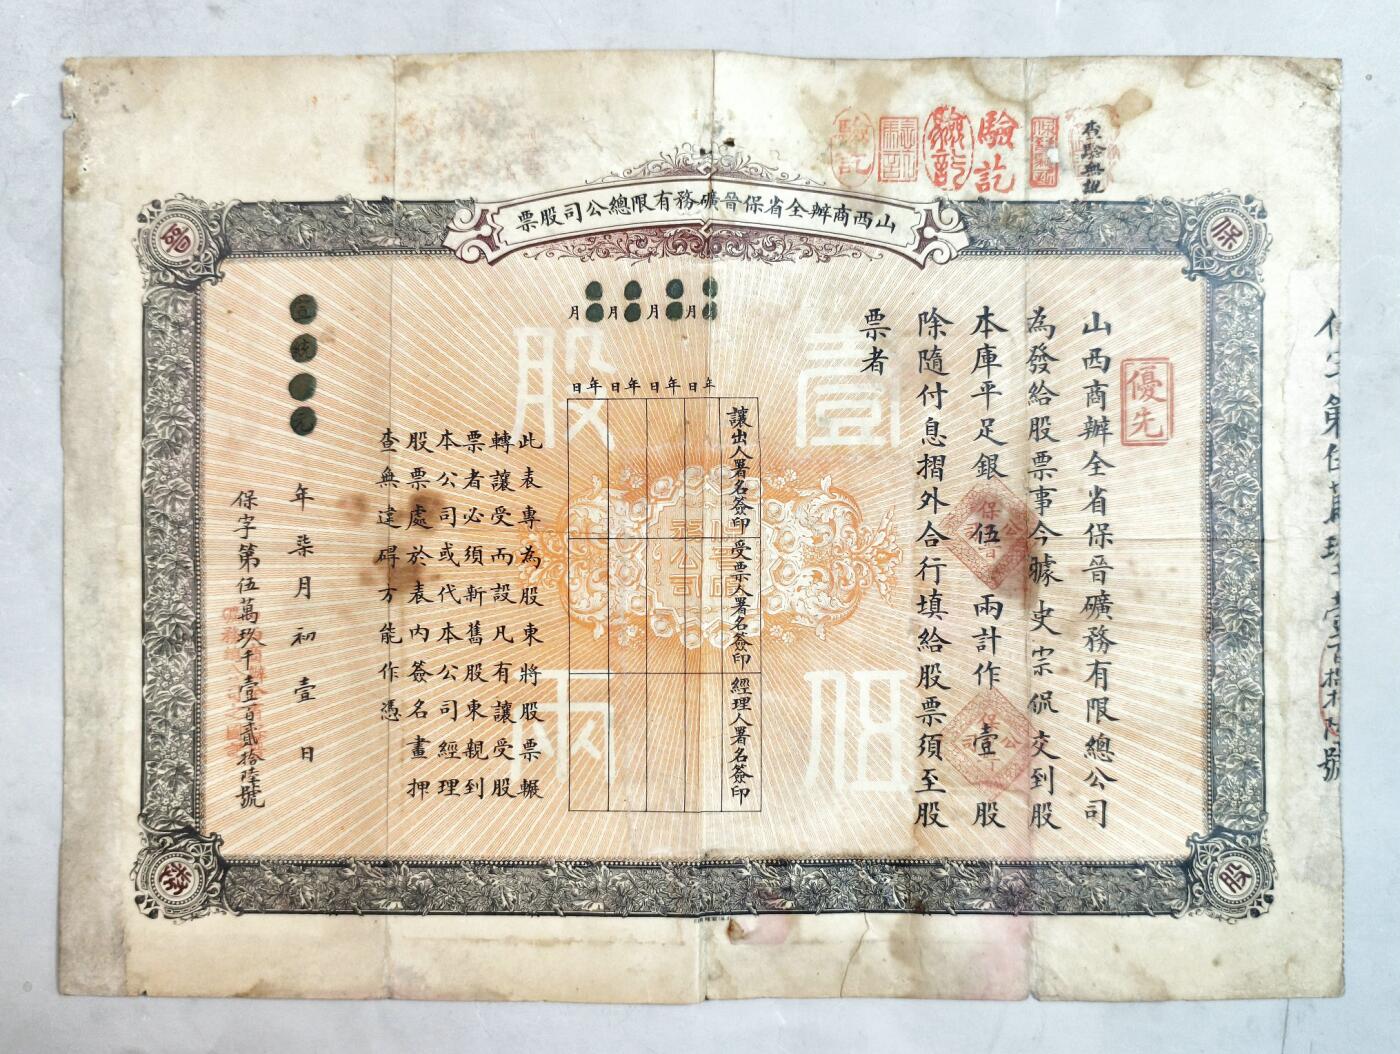 山西商辦全省保晉礦務有限總公司股票
保
晉
股
票
驗訖
驗訖
查驗無訛
優先
山西商辦全省保晉礦務有限總公司
為發給股票事今據史宗侃交到股
本庫平足銀伍兩計作壹股
除隨付息摺外合行填給股票須至股
票者
壹股
伍兩
月
月
月
月
年 日
年 日
年 日
年 日
讓出人署名簽印
受票人署名簽印
經理人署名簽印
此表專為股東將股票輾
轉讓受而設凡有讓受股
票者必須新舊股東親到
本公司或代本公司經理
股票處於表內簽名畫押
查無違碍方能作憑
宣統元年柒月初壹日
保字第伍萬玖千壹百貳拾陸號